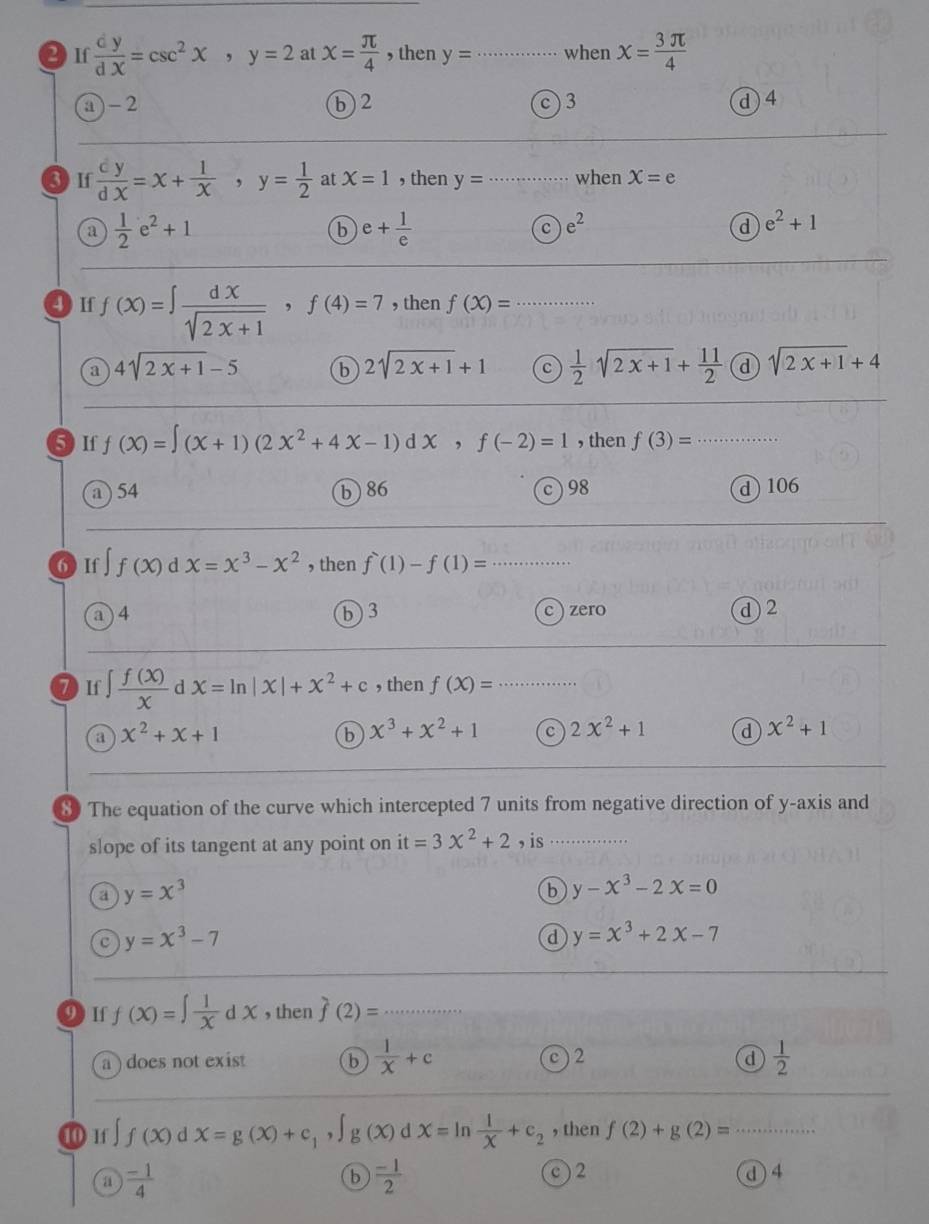 2 If dy/dx = csc² x , y = 2 at x = π/4 , then y = ............... when x = 3π/4
a −2 b 2 c 3 d 4
3 If dy/dx = x + 1/x , y = 1/2 at x = 1 , then y = ............... when x = e
a 1/2 e² + 1 b e + 1/e c e² d e² + 1
4 If f (x) = ∫ dx/√(2x + 1) , f (4) = 7 , then f (x) = ...............
a 4√(2x + 1) − 5 b 2√(2x + 1) + 1 c 1/2 √(2x + 1) + 11/2 d √(2x + 1) + 4
5 If f (x) = ∫ (x + 1) (2x² + 4x − 1) dx , f (−2) = 1 , then f (3) = ...............
a 54 b 86 c 98 d 106
6 If ∫ f (x) dx = x³ − x² , then f`(1) − f (1) = ...............
a 4 b 3 c zero d 2
7 If ∫ f (x)/x dx = ln |x| + x² + c , then f (x) = ...............
a x² + x + 1 b x³ + x² + 1 c 2x² + 1 d x² + 1
8 The equation of the curve which intercepted 7 units from negative direction of y-axis and
slope of its tangent at any point on it = 3x² + 2 , is ...............
a y = x³ b y − x³ − 2x = 0
c y = x³ − 7 d y = x³ + 2x − 7
9 If f (x) = ∫ 1/x dx , then f` (2) = ...............
a does not exist b 1/x + c c 2 d 1/2
10 If ∫ f (x) dx = g (x) + c₁ , ∫ g (x) dx = ln 1/x + c₂ , then f (2) + g (2) = ...............
a −1/4 b −1/2 c 2 d 4